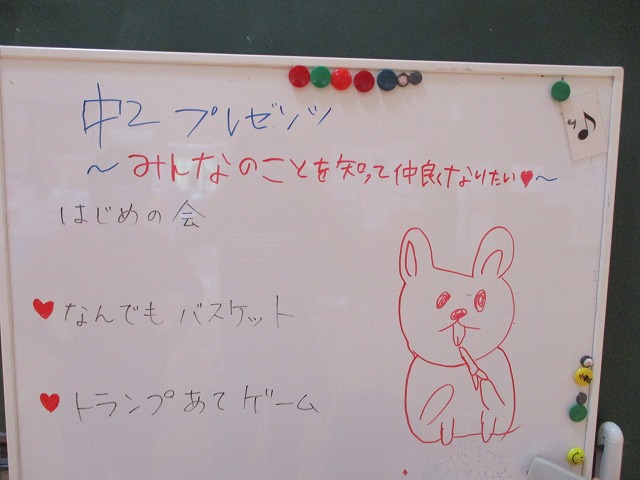 中2 プレゼンツ
～みんなのことを知って仲良くなりたい♥～
はじめの会
♥ なんでもバスケット
♥ トランプあてゲーム